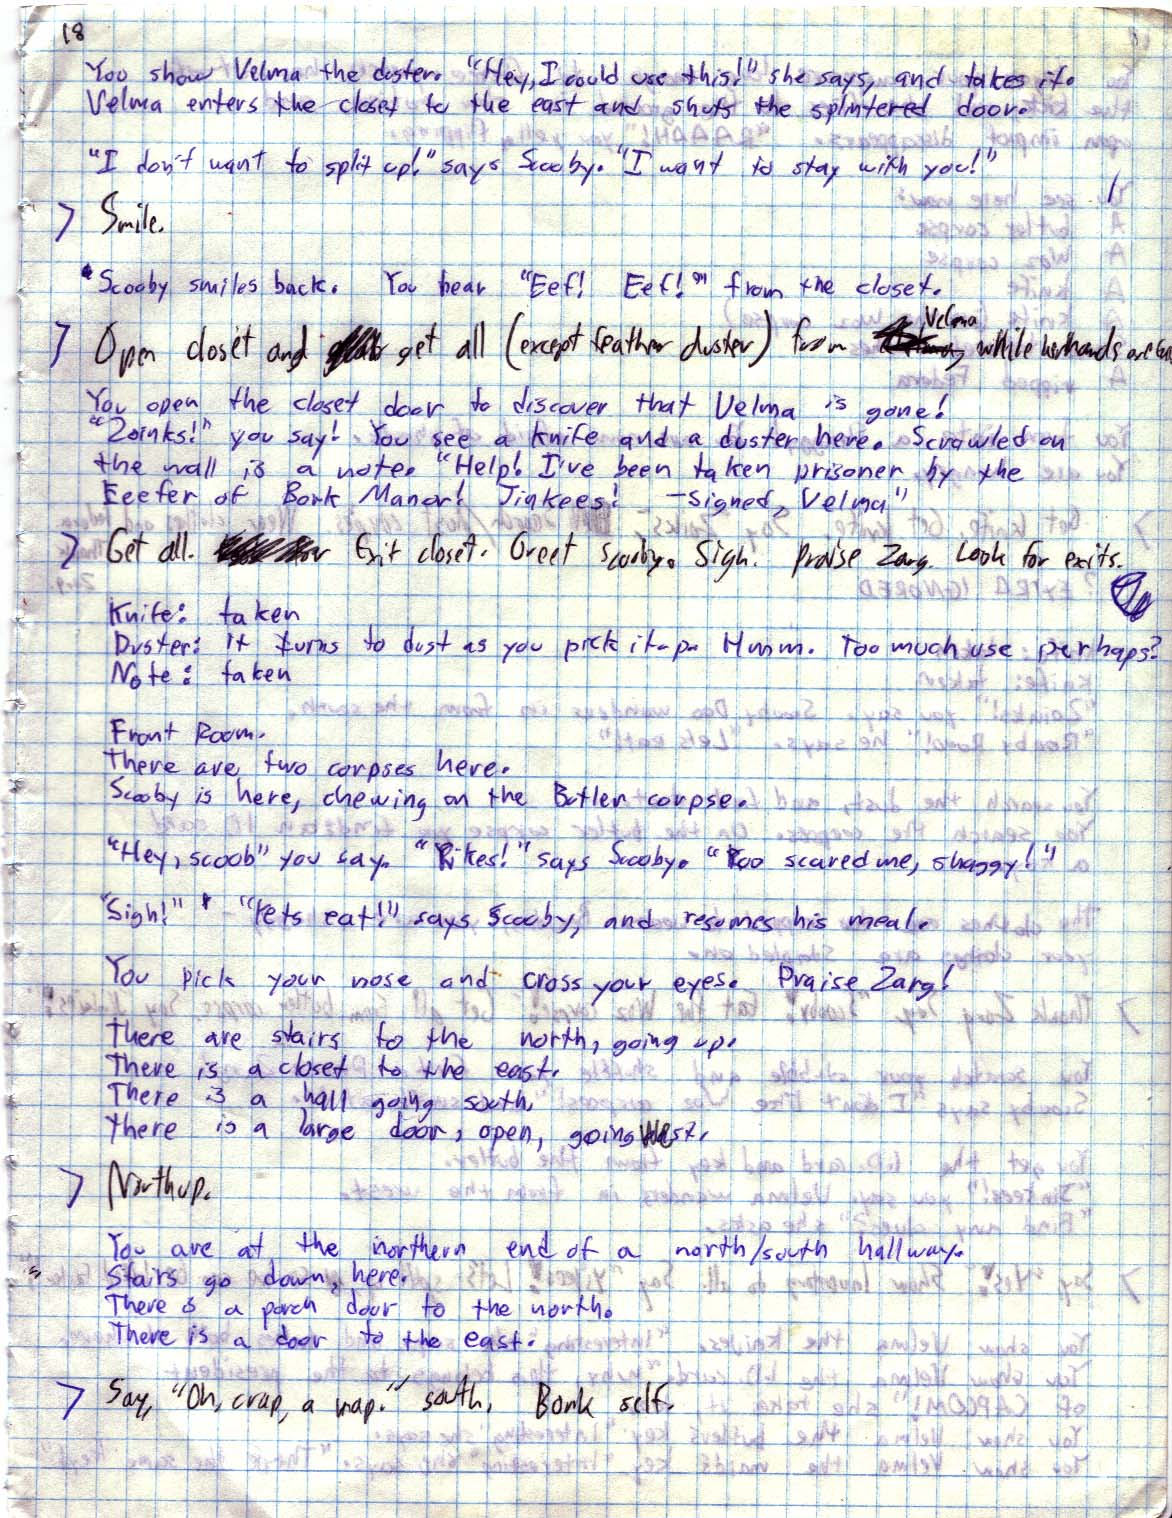 18
You show Velma the duster. "Hey, I could use this!" she says, and takes it.
Velma enters the closet to the east and shuts the splintered door.
"I don't want to split up!" says Scooby. "I want to stay with you!"
> Smile.
Scooby smiles back. You hear "Eef! Eef!" from the closet.
> Open closet and get all (except feather duster) from Velma, while her hands are
You open the closet door to discover that Velma is gone!
"Zoinks!" you say! You see a knife and a duster here. Scrawled on
the wall is a note. "Help! I've been taken prisoner by the
Eeefer of Bonk Manor! Jinkees! -Signed, Velma"
> Get all. Exit closet. Greet Scooby. Sigh. Praise Zarg. Look for exits.
Knife: taken
Duster: it turns to dust as you pick it up. Hmm. Too much use perhaps?
Note: taken
Front Room.
There are two corpses here.
Scooby is here, chewing on the Butler corpse.
"Hey, scoob" you say. "Rikes!" says Scooby. "Roo scared me, shaggy!"
"Sigh!" - "Rets eat!" says Scooby, and resumes his meal.
You pick your nose and cross your eyes. Praise Zarg!
There are stairs to the north, going up.
There is a closet to the east.
There is a hall going south.
There is a large door, open, going West.
> North up.
You are at the northern end of a north/south hallway.
Stairs go down, here.
There is a porch door to the north.
There is a door to the east.
> Say, "Oh, crap, a map." south. Bonk self.